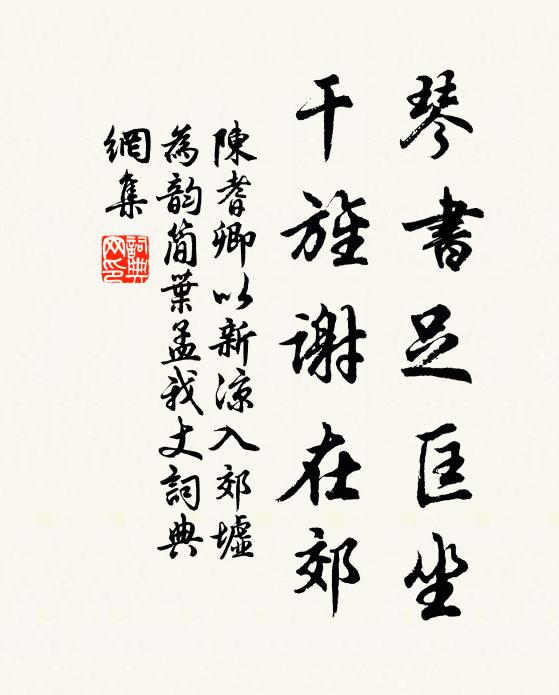 琴書足匡坐
干旌謝在郊
陳耆卿以新涼入郊墟
為韵简葉孟我丈詞典
網集
詞典网印